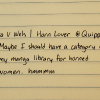 a U Wels | Harn Lover @Quipp
Maybe I should have a category
my manga library for horned
women. hmmmm